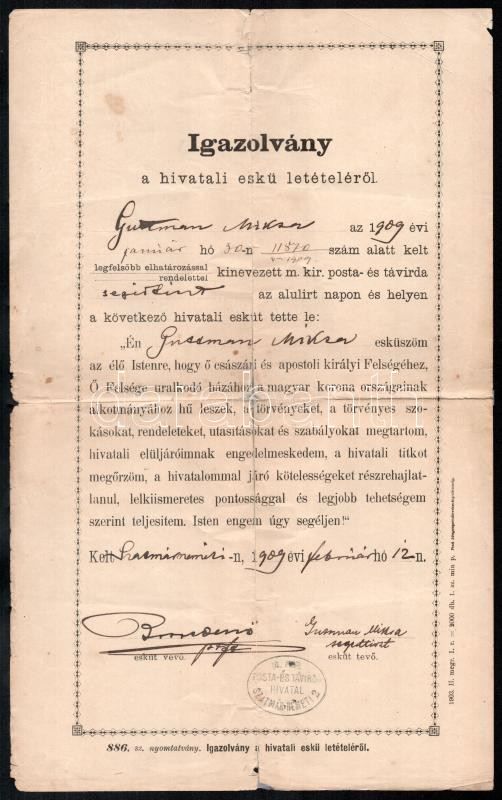 Igazolvány
a hivatali eskü letételéről.
Guttman Miksa az 1909 évi
január hó 30-n 11870 szám alatt kelt
v. 1909
legfelsőbb elhatározással
rendelettel kinevezett m. kir. posta- és távirda
segédtiszt az alulirt napon és helyen
a következő hivatali esküt tette le:
„Én Guttman Miksa esküszöm
az élő Istenre, hogy ő császári és apostoli királyi Felségéhez,
Ő Felsége uralkodó házához a magyar korona országainak
alkotmányához hű leszek, a törvényeket, a törvényes szo-
kásokat, rendeleteket, utasításokat és szabályokat megtartom,
hivatali elüljáróimnak engedelmeskedem, a hivatali titkot
megőrzöm, a hivatalommal járó kötelességeket részrehajlat-
lanul, lelkiismeretes pontossággal és legjobb tehetségem
szerint teljesitem. Isten engem úgy segéljen!“
Kelt Szatmárnémeti-n, 1909 évi február hó 12-n.
Guttman Miksa
segédtiszt
esküt vevő.
esküt tevő.
POSTA-ÉS TÁVIRÓ-
HIVATAL
SZATMÁR-NÉMETI 2
886. sz. nyomtatvány. Igazolvány a hivatali eskü letételéről.
1903. II. negy. I. r. — 2000 db. I. sz. min p.
darabanth